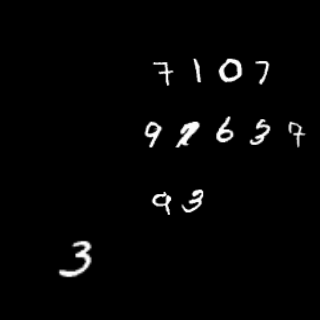 7107
92637
93
3